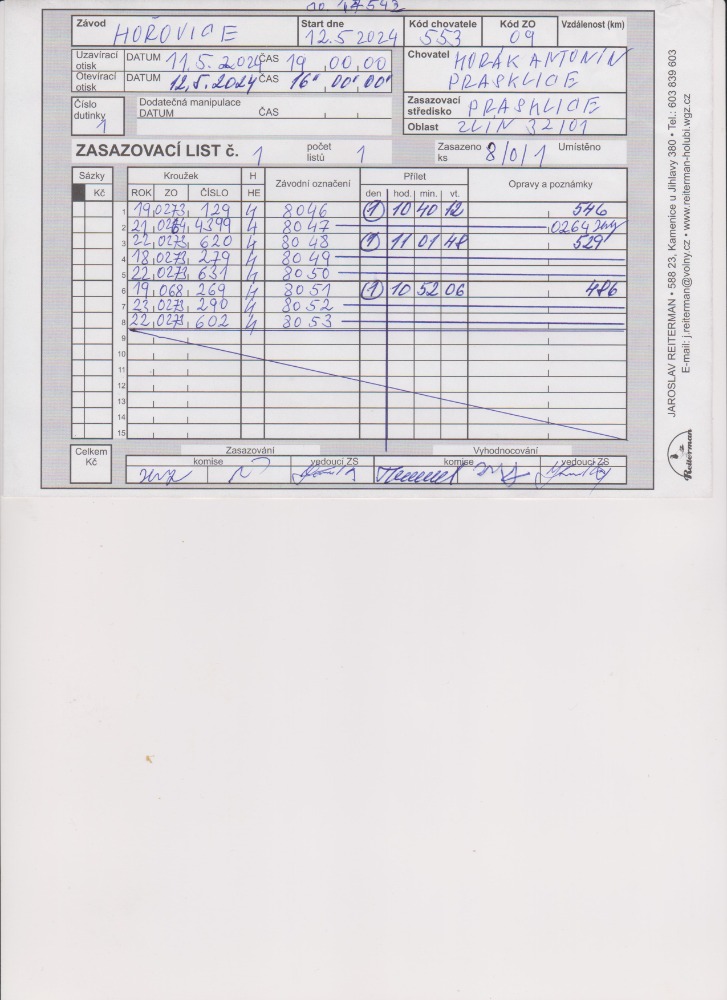 Závod HOŘOVICE Start dne 12.5 2024 Kód chovatele 553 Kód ZO 09 Vzdálenost (km)
Uzavírací otisk DATUM 11.5. 2024 ČAS 19 00 00
Otevírací otisk DATUM 12.5.2024 ČAS 16" 00' 00'
Chovatel HORÁK ANTONÍN
PRASKLICE
Číslo dutinky 1 Dodatečná manipulace
DATUM ČAS
Zasazovací středisko PRASKLICE
Oblast ZLÍN 32/01
ZASAZOVACÍ LIST č. 1 počet listů 1 Zasazeno ks 8/0/1 Umístěno
Sázky Kroužek H Závodní označení Přílet Opravy a poznámky
Kč ROK ZO ČÍSLO HE den hod. min. vt.
1 19 0273 129 H 8046 1 10 40 12 546
2 21 0264 4399 H 8047 0264
3 22 0273 620 H 8048 1 11 01 48 529
4 18 0273 279 H 8049
5 22 0273 631 H 8050
6 19 068 269 H 8051 1 10 52 06 486
7 23 0273 290 H 8052
8 22 0273 602 H 8053
9
10
11
12
13
14
15
Celkem Kč Zasazování Vyhodnocování
komise vedoucí ZS komise vedoucí ZS
JAROSLAV REITERMAN • 588 23, Kamenice u Jihlavy 380 • Tel.: 603 839 603
E-mail: j.reiterman@volny.cz • www.reiterman-holubi.wgz.cz
Reiterman